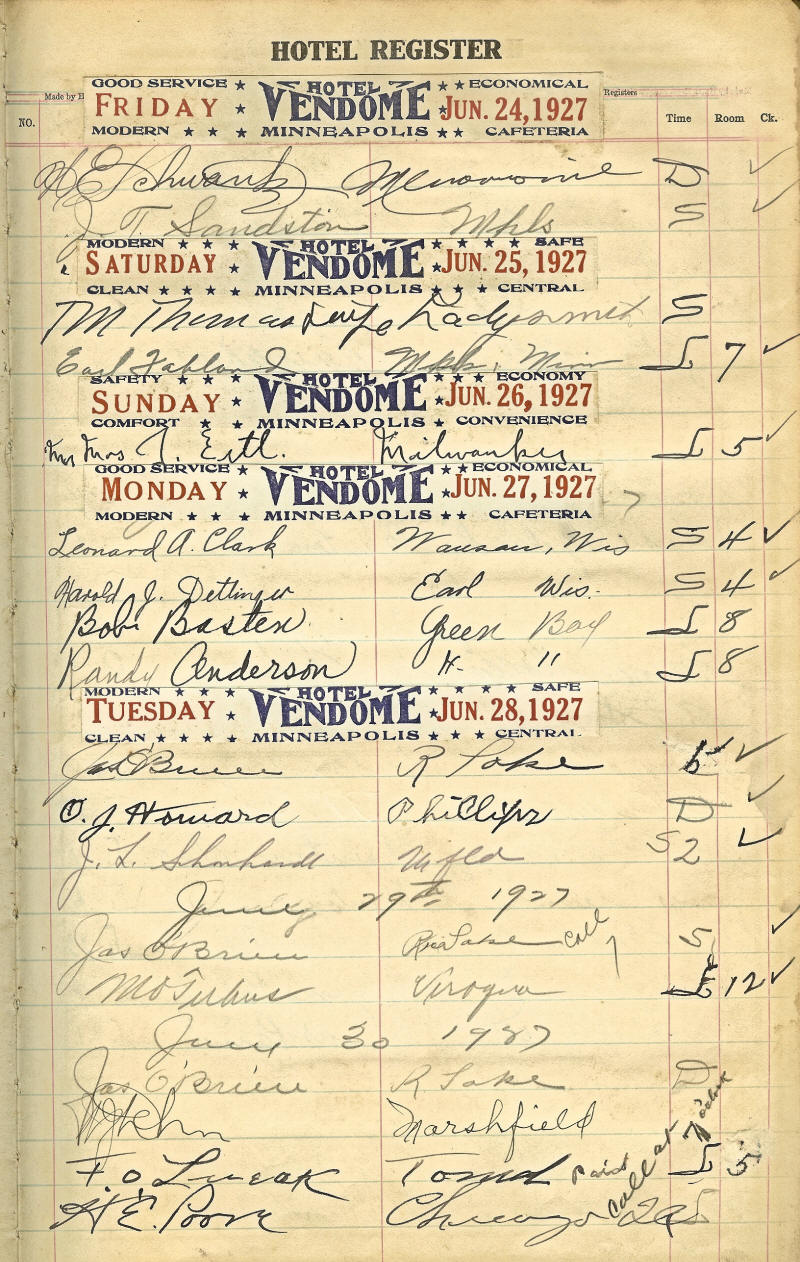 HOTEL REGISTER
Made by
Registers
NO.
Time Room Ck.
GOOD SERVICE ★ HOTEL ★ ★ ECONOMICAL
FRIDAY ★ VENDOME ★ JUN. 24, 1927
MODERN ★ ★ ★ MINNEAPOLIS ★ ★ CAFETERIA
H E Schwank Menomonie D ✓
J. T. Sandston Mpls S ✓
MODERN ★ ★ ★ HOTEL ★ ★ ★ SAFE
SATURDAY ★ VENDOME ★ JUN. 25, 1927
CLEAN ★ ★ ★ MINNEAPOLIS ★ ★ ★ CENTRAL
TM Thomas & wife Ladysmith S
Earl Mpls, Minn L 7 ✓
SAFETY ★ ★ ★ HOTEL ★ ★ ★ ECONOMY
SUNDAY ★ VENDOME ★ JUN. 26, 1927
COMFORT ★ ★ MINNEAPOLIS ★ CONVENIENCE
Mr Mrs J. Ertl. Milwaukee L 5 ✓
GOOD SERVICE ★ HOTEL ★ ★ ECONOMICAL
MONDAY ★ VENDOME ★ JUN. 27, 1927
MODERN ★ ★ ★ MINNEAPOLIS ★ ★ CAFETERIA
Leonard A. Clark Wausau, Wis S 4 ✓
Harold J. Dettinger Earl Wis. S 4 ✓
Bob Basten Green Bay L 8
Randy Anderson " " L 8
MODERN ★ ★ ★ HOTEL ★ ★ ★ SAFE
TUESDAY ★ VENDOME ★ JUN. 28, 1927
CLEAN ★ ★ ★ MINNEAPOLIS ★ ★ ★ CENTRAL
Jas O'Brien R Lake ✓
O. J. Howard Phillips D ✓
J. L. Shonhardt Mfld S 2 ✓
June 29th 1927
Jas O'Brien Rice Lake call 7 S ✓
Viroqua L 12 ✓
June 30 1927
Jas O'Brien R Lake D
Marshfield
F. O. Tomah Paid call at 7 o'clock L 5
H E. Poore Chicago